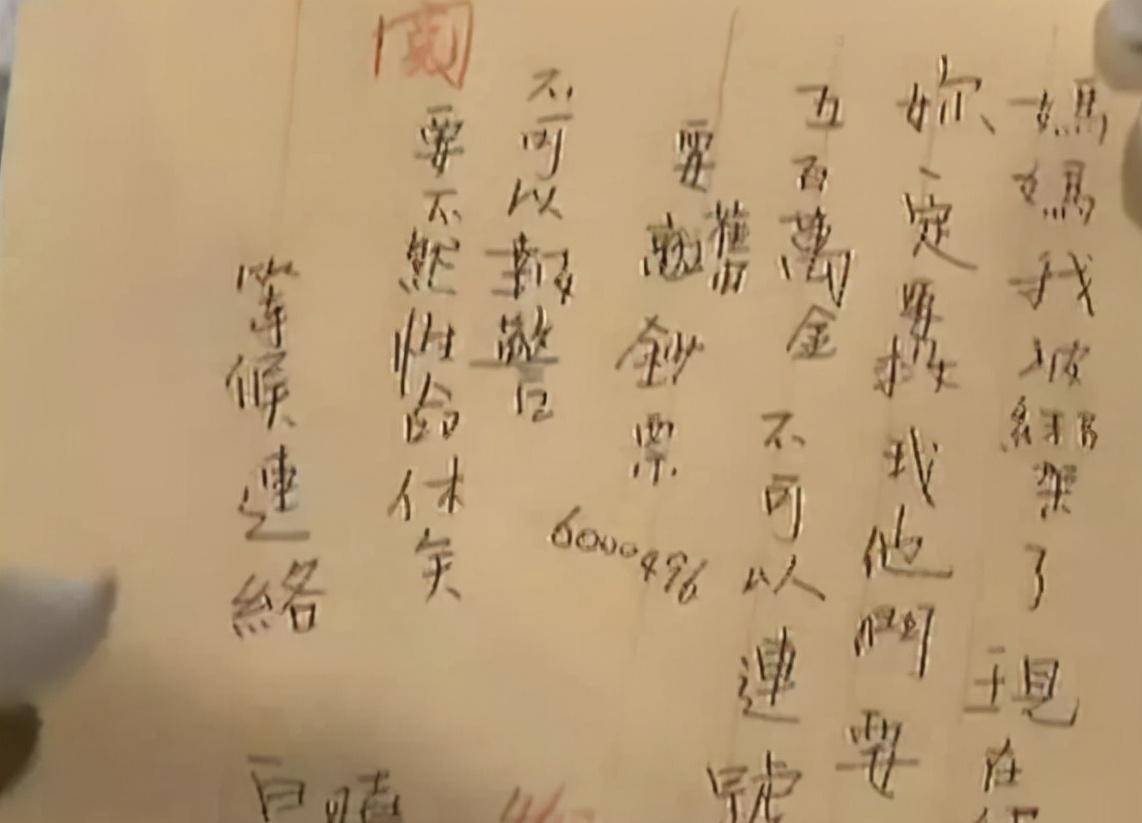 媽媽我被綁架了現在
妳一定要救我他們要
五百萬金 不可以連號
要舊鈔票
6000496
不可以報警
要不然性命休矣
等候連絡
白曉